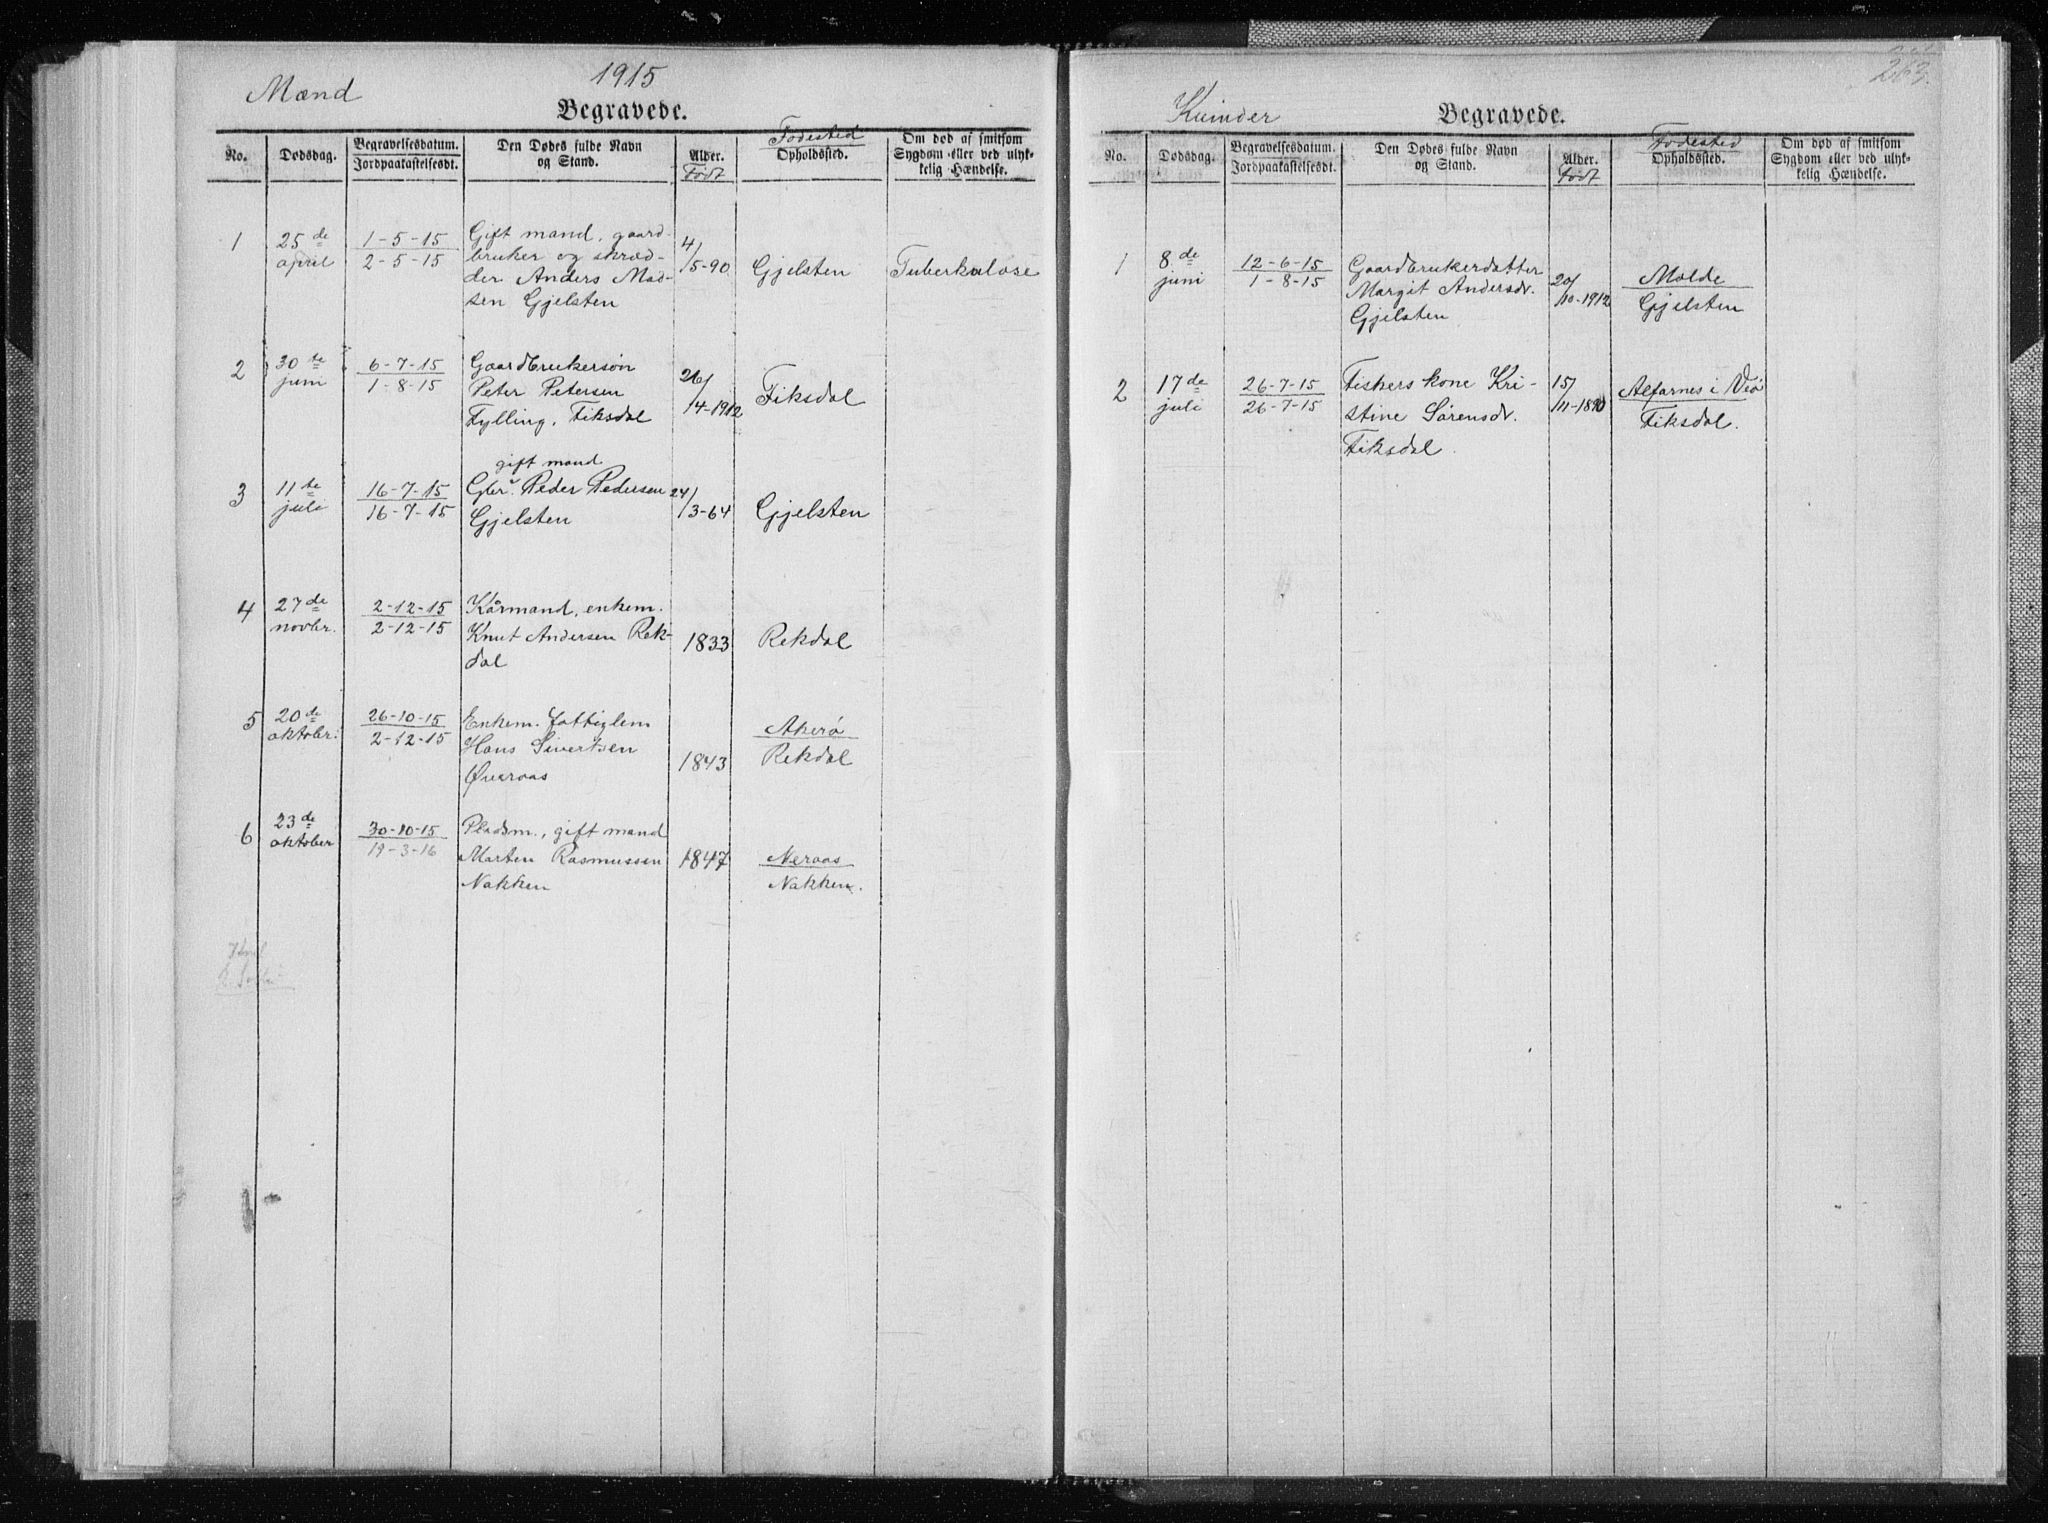 Mænd
1915
Begravede.
No.
Dødsdag.
Begravelsesdatum.
Jordpaakastelsesdt.
Den Dødes fulde Navn
og Stand.
Alder.
Født
Fødested
Opholdssted.
Om død af smitsom
Sygdom eller ved ulyk-
kelig Hændelse.
1
25de
april
1-5-15
2-5-15
Gift mand, gaard-
bruker og skræd-
der Anders Mad-
sen Gjelsten
4/
5-90
Gjelsten
Tuberkulose
2
30te
juni
6-7-15
1-8-15
Gaardbrukersøn
Peter Petersen
Fylling, Fiksdal
26/
4-1912
Fiksdal
3
11te
juli
16-7-15
16-7-15
gift mand
Gbr. Peder Pedersen
Gjelsten
24/
3-64
Gjelsten
4
27de
novbr.
2-12-15
2-12-15
Kårmand, enkem.
Knut Andersen Rek-
dal
1833
Rekdal
5
20de
oktober.
26-10-15
2-12-15
Enkem. fattiglem
Hans Sivertsen
Øveraas
1843
Akerø
Rekdal
6
23de
oktober
30-10-15
19-3-16
Pladsm., gift mand
Marten Rasmussen
Nakken
1847
Neraas
Nakken.
263.
Kvinder
Begravede.
No.
Dødsdag.
Begravelsesdatum.
Jordpaakastelsesdt.
Den Dødes fulde Navn
og Stand.
Alder.
Født
Fødested
Opholdssted.
Om død af smitsom
Sygdom eller ved ulyk-
kelig Hændelse.
1
8de
juni
12-6-15
1-8-15
Gaardbrukerdatter
Margit Andersdr.
Gjelsten
20/
10-1912
Molde
Gjelsten
2
17de
juli
26-7-15
26-7-15
Fiskers kone Kri-
stine Sørensdr.
Fiksdal.
15/
11-1890
Alfarnes i Veø
Fiksdal.